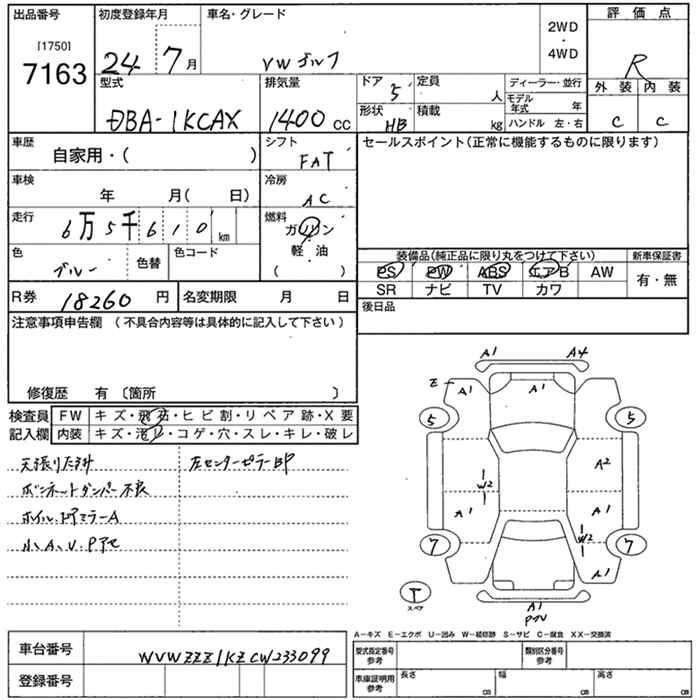 出品番号
初度登録年月
車名・グレード
2WD
・
4WD
評価点
[1750]
7163
24 7月
VW ゴルフ
R
型式
DBA-1KCAX
排気量
1400 cc
ドア 5
定員 人
ディーラー・並行
モデル年式 年
ハンドル 左・右
形状 HB
積載 kg
外装 内装
C C
車歴
自家用・( )
シフト
FAT
セールスポイント(正常に機能するものに限ります)
車検
年 月( 日)
冷房
AC
走行
6万5千610km
燃料
ガソリン
軽・油
( )
色
ブルー
色替
色コード
装備品(純正品に限り丸をつけて下さい)
新車保証書
PS PW ABS エアB AW
SR ナビ TV カワ
有・無
R券 18260円
名変期限 月 日
後日品
注意事項申告欄 (不具合内容等は具体的に記入して下さい)
修復歴 有 〔箇所 〕
検査員記入欄
FW キズ・飛石・ヒビ割・リペア跡・X要
内装 キズ・汚レ・コゲ・穴・スレ・キレ・破レ
左センターピラーBP
ボンネットダンパー不良
ホイル、ドアミラーA
小、A、U、P
A1 A4
E A1 A1
5 5
A2
W2
A1 A1
W2
7 7
A1
T
スペア
A1
A-キズ E-エクボ U-凹み W-補修跡 S-サビ C-腐食 XX-交換済
車台番号 WVWZZZ1KZCW233099
登録番号
型式指定番号 参考
類別区分番号 参考
車庫証明用 参考
長さ cm
幅 cm
高さ cm